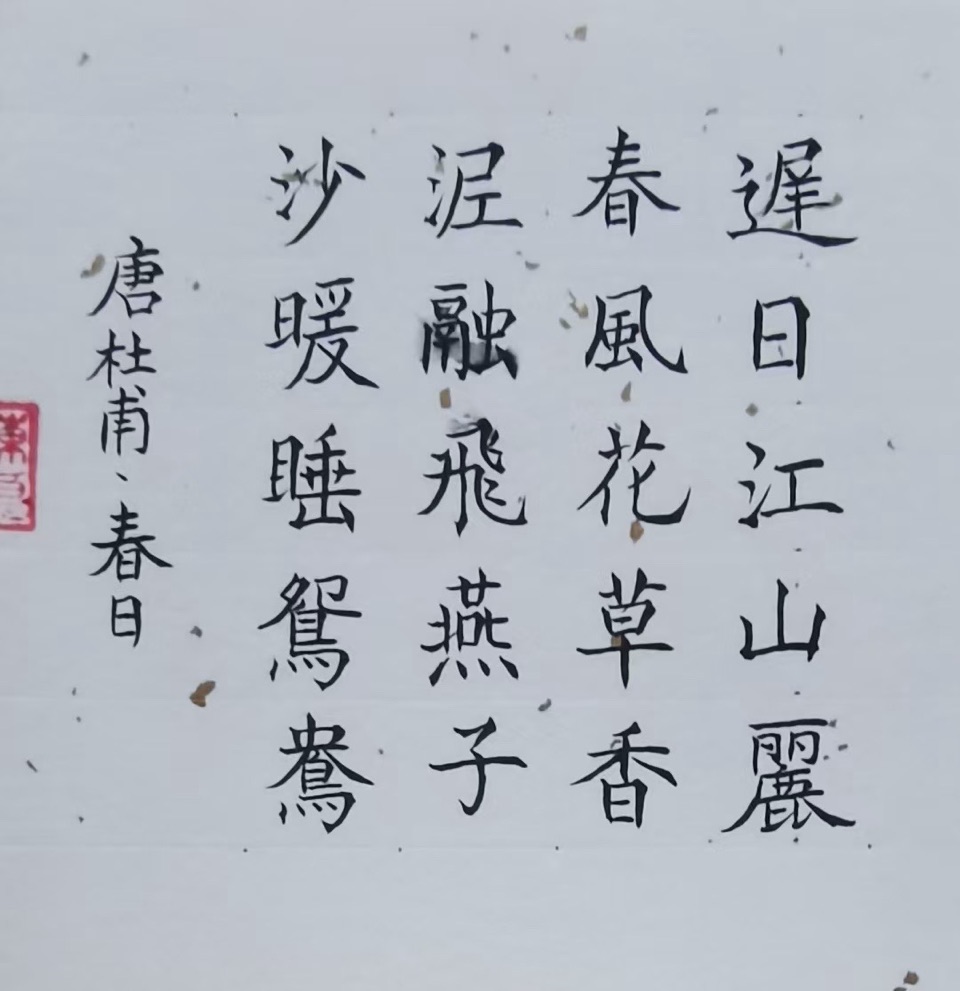 遲日江山麗
春風花草香
泥融飛燕子
沙暖睡鴛鴦
唐杜甫、春日